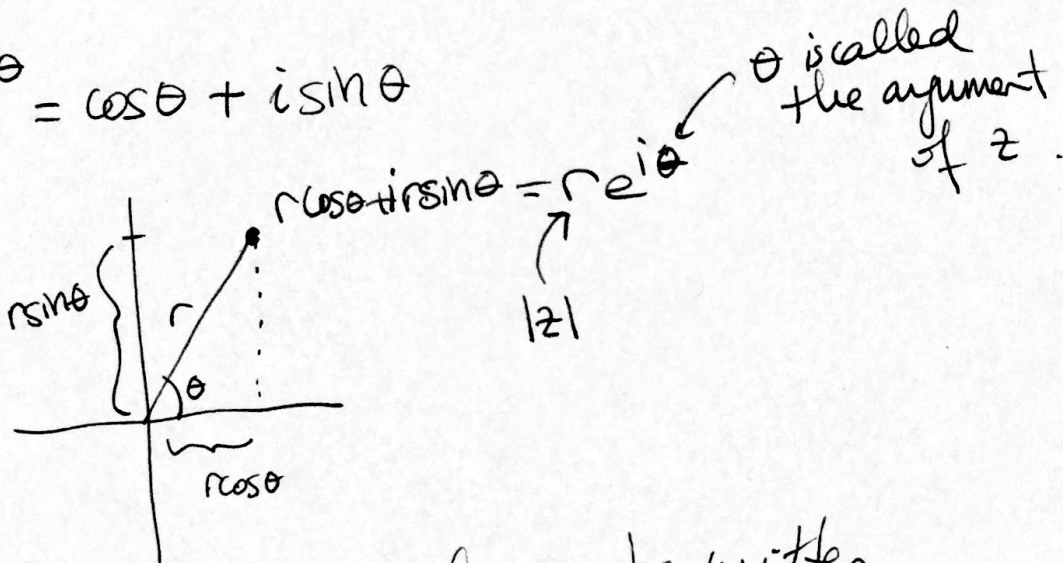 θ = cosθ + i sinθ
θ is called
the argument
of z.
rcosθ+irsinθ = re^{iθ}
|z|
rsinθ
r
θ
rcosθ